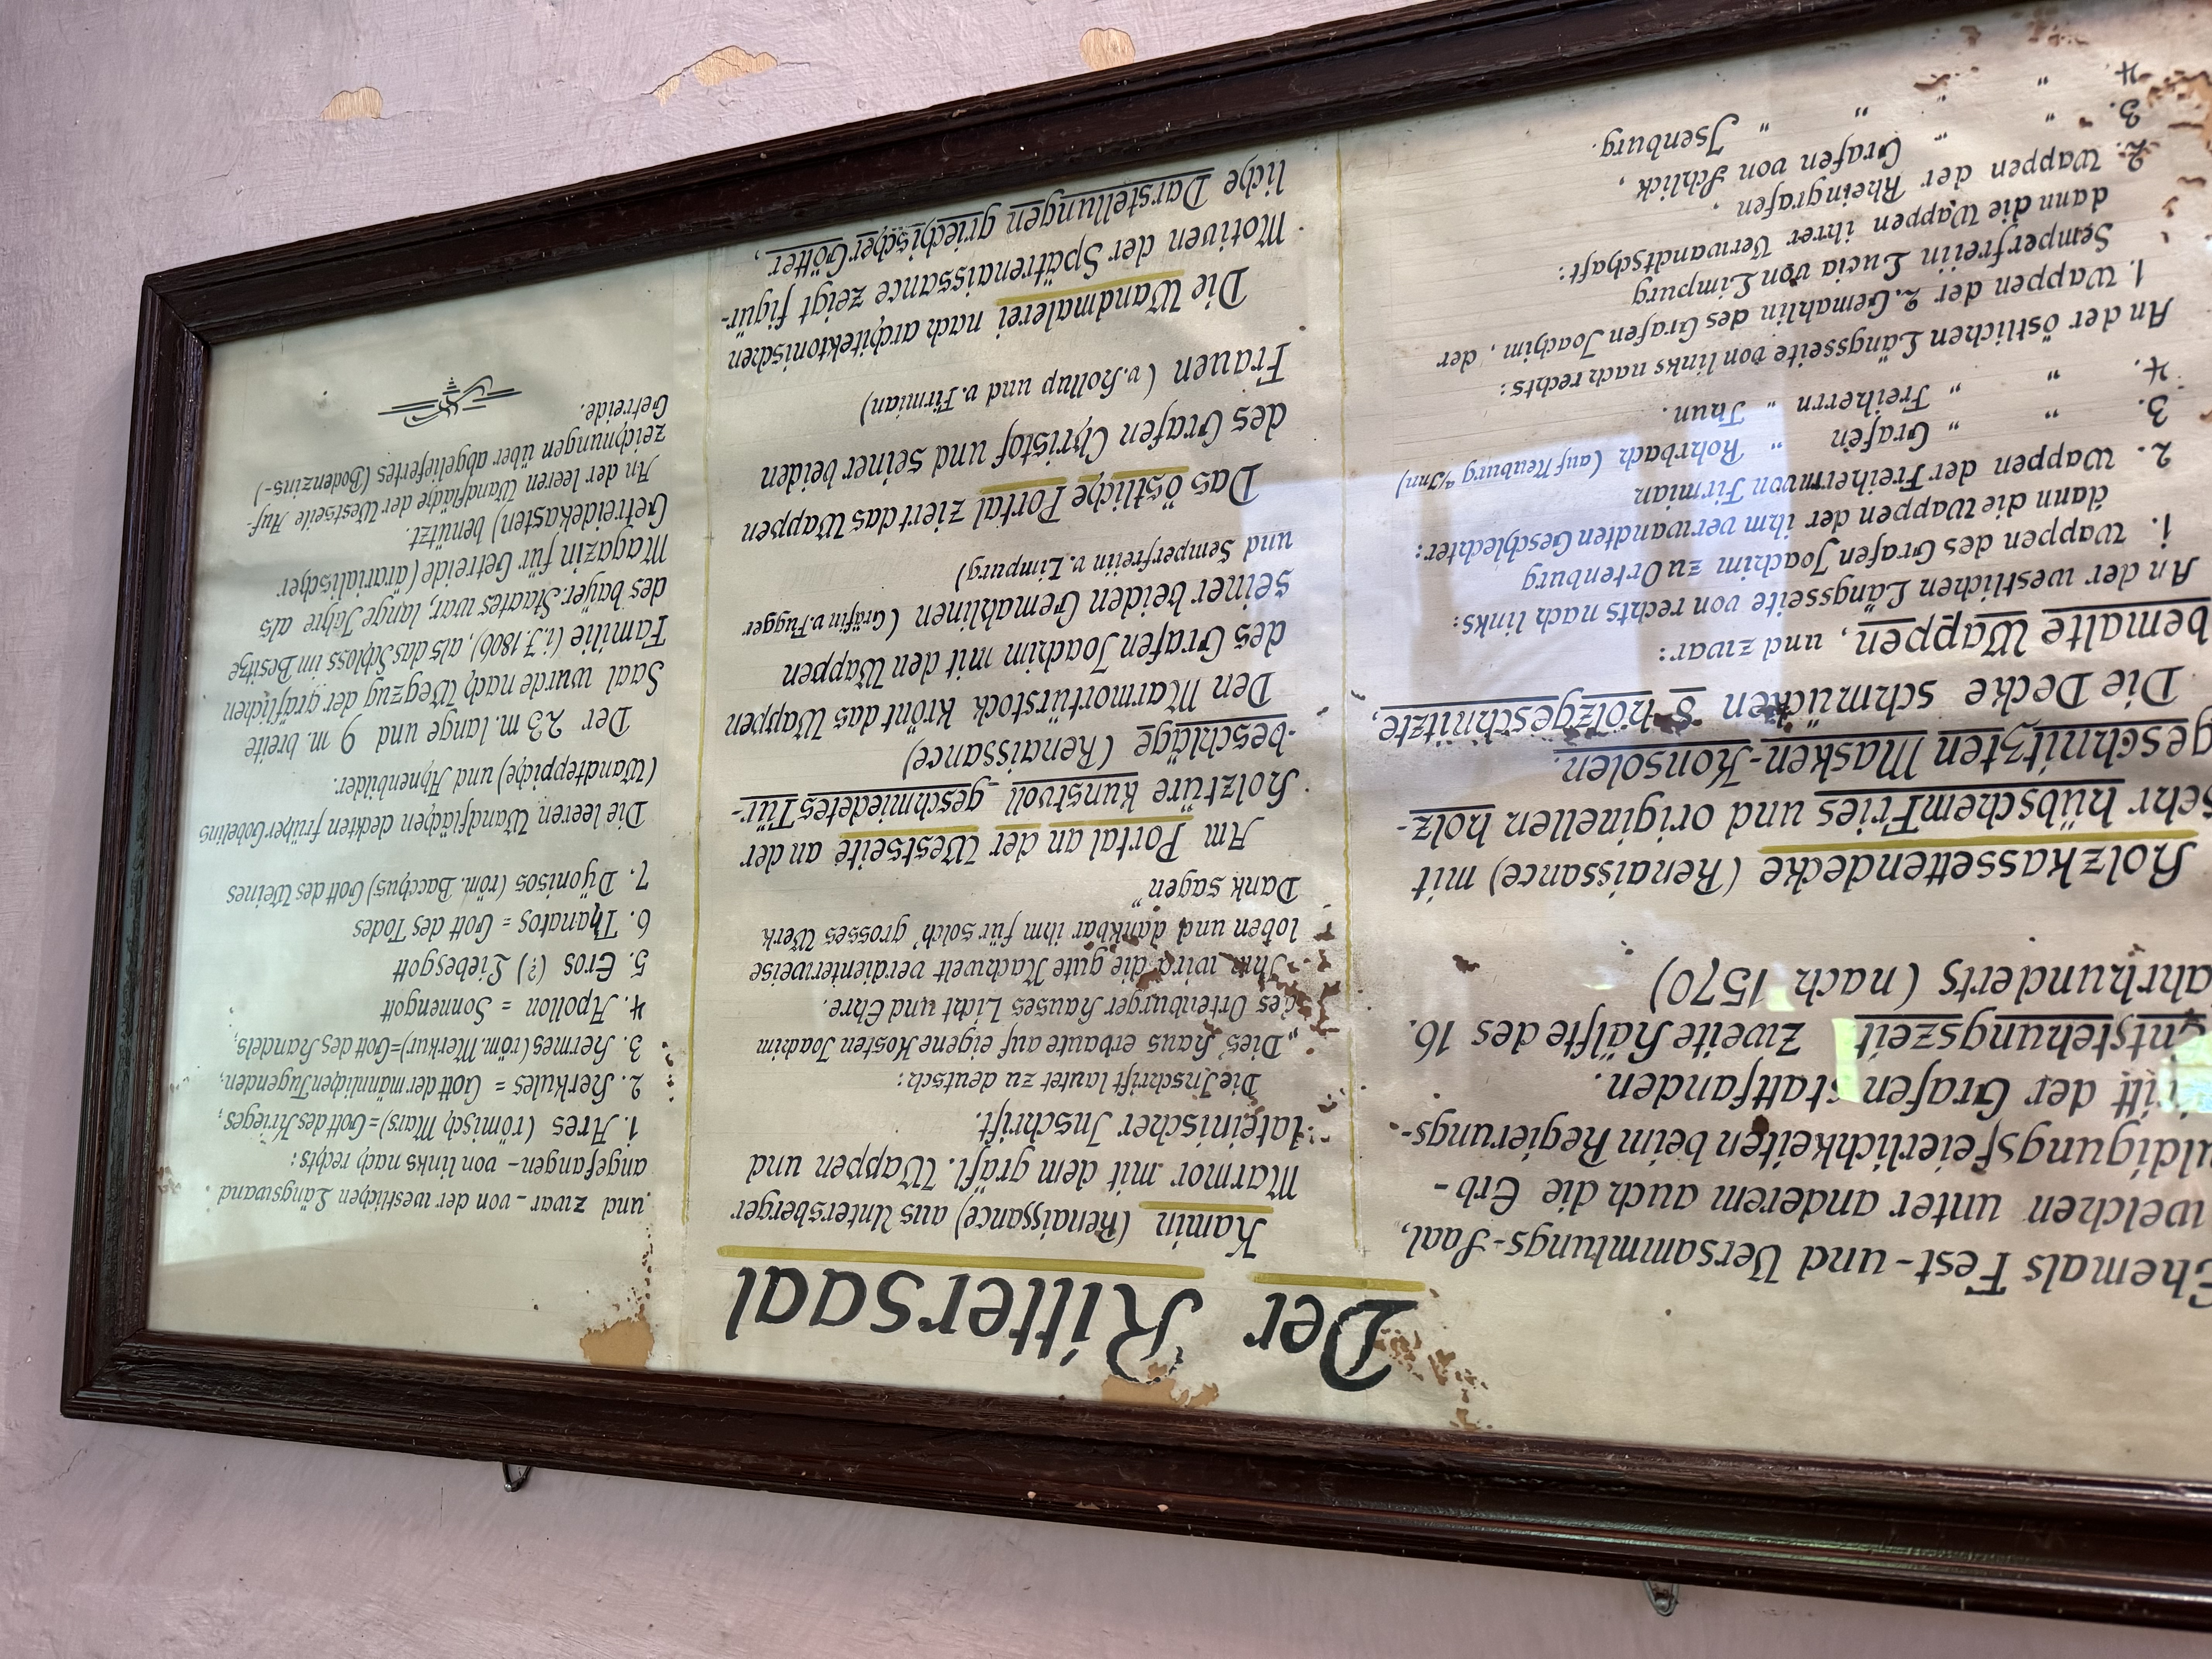 Der Rittersaal
Ehemals Fest- und Versammlungs-Saal,
welchen unter anderem auch die Erb-
uldigungsfeierlichkeiten beim Regierungs-
tritt der Grafen stattfanden.
Entstehungszeit Zweite Hälfte des 16.
ahrhunderts (nach 1570)
Holzkassettendecke (Renaissance) mit
sehr hübschem Fries und originellen holz-
geschnitzten Masken-Konsolen.
Die Decke schmücken 8 holzgeschnitzte,
bemalte Wappen, und zwar:
An der westlichen Längsseite von rechts nach links:
1. Wappen des Grafen Joachim zu Ortenburg
dann die Wappen der ihm verwandten Geschlechter:
2. Wappen der Freiherrn von Firmian
3. " " Grafen " Rohrbach (auf Neuburg a/Inn)
4. " " Freiherrn " Thun.
An der östlichen Längsseite von links nach rechts:
1. Wappen der 2. Gemahlin des Grafen Joachim, der
Semperfreiin Lucia von Limpurg
dann die Wappen ihrer Verwandtschaft:
2. Wappen der Rheingrafen,
3. " " Grafen von Schlick,
4. " " " " Isenburg.
Kamin (Renaissance) aus Untersberger
Marmor mit dem gräfl. Wappen und
lateinischer Inschrift.
Die Inschrift lautet zu deutsch:
„Dies' Haus erbaute auf eigene Kosten Joachim
des Ortenburger Hauses Licht und Ehre.
Ihm wird die gute Nachwelt verdienterweise
loben und dankbar ihm für solch' grosses Werk
Dank sagen"
Am Portal an der Westseite an der
Holztüre kunstvoll geschmiedetes Tür-
-beschläge (Renaissance)
Den Marmortürstock krönt das Wappen
des Grafen Joachim mit den Wappen
seiner beiden Gemahlinen (Gräfin v. Fugger
und Semperfreiin v. Limpurg)
Das östliche Portal ziert das Wappen
des Grafen Christof und seiner beiden
Frauen (v. Hollup und v. Firmian)
Die Wandmalerei nach architektonischen
Motiven der Spätrenaissance zeigt figür-
liche Darstellungen griechischer Götter,
und zwar - von der westlichen Längswand
angefangen - von links nach rechts:
1. Ares (römisch Mars) = Gott des Krieges,
2. Herkules = Gott der männlichen Tugenden,
3. Hermes (röm. Merkur) = Gott des Handels,
4. Apollon = Sonnengott
5. Eros (?) Liebesgott
6. Thanatos = Gott des Todes
7. Dÿonisos (röm. Bacchus) Gott des Weines
Die leeren Wandflächen deckten früher Gobelins
(Wandteppiche) und Ahnenbilder.
Der 23 m. lange und 9 m. breite
Saal wurde nach Wegzug der gräflichen
Familie (i. J. 1806), als das Schloss im Besitze
des bayer. Staates war, lange Jahre als
Magazin für Getreide (ärarialischer
Getreidekasten) benützt.
An der leeren Wandfläche der Westseite Auf-
zeichnungen über abgeliefertes (Bodenzins-)
Getreide.